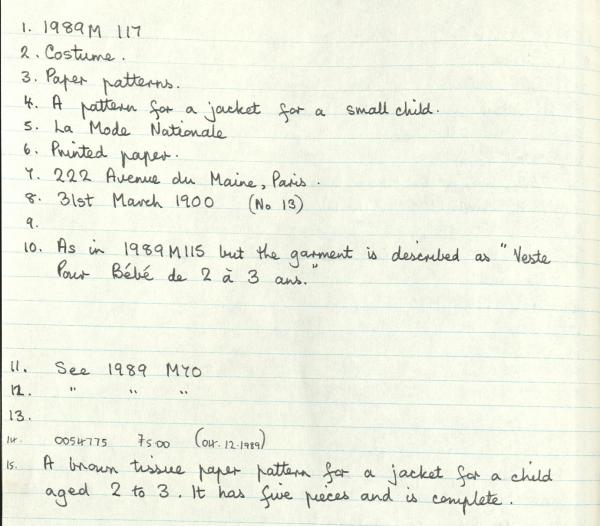 1. 1989M 117
2. Costume.
3. Paper patterns.
4. A pattern for a jacket for a small child.
5. La Mode Nationale
6. Printed paper.
7. 222 Avenue du Maine, Paris.
8. 31st March 1900 (No 13)
9.
10. As in 1989M115 but the garment is described as "Veste
Pour Bébé de 2 à 3 ans."
11. See 1989 M70
12. " " "
13.
14. 0054775 7500 (04.12.1989)
15. A brown tissue paper pattern for a jacket for a child
aged 2 to 3. It has five pieces and is complete.